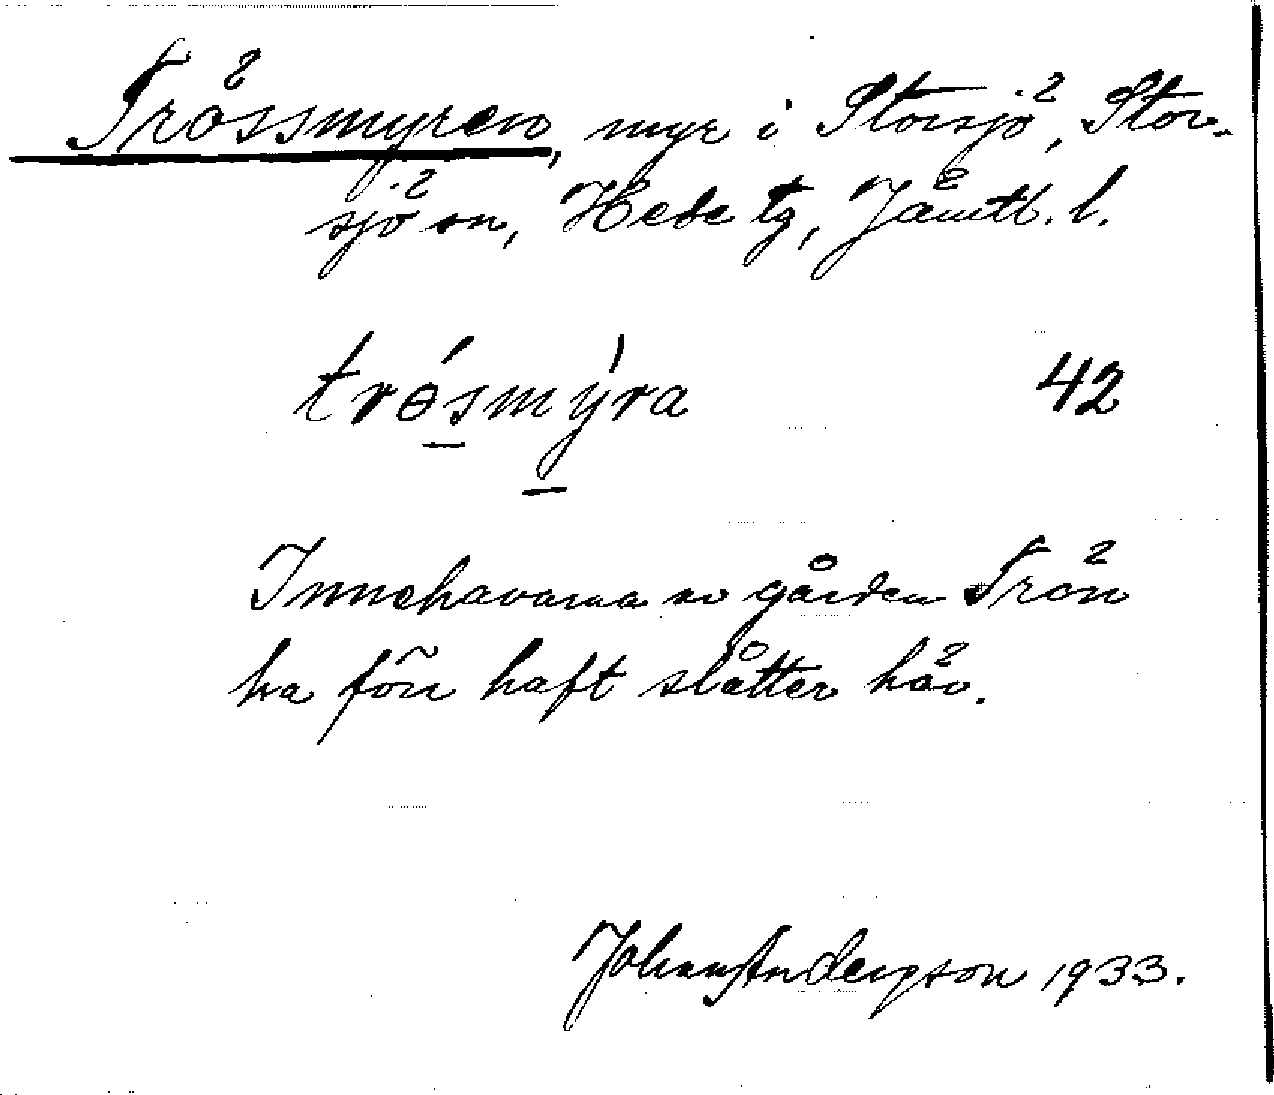 Trössmyren, myr i Storsjö, Stor-
sjö sn, Hede tg, Jämtl. l.
trɵ́smýra 42
Innehavarna av gården Trön
ha förr haft slåtter här.
Johan Anderson 1933.